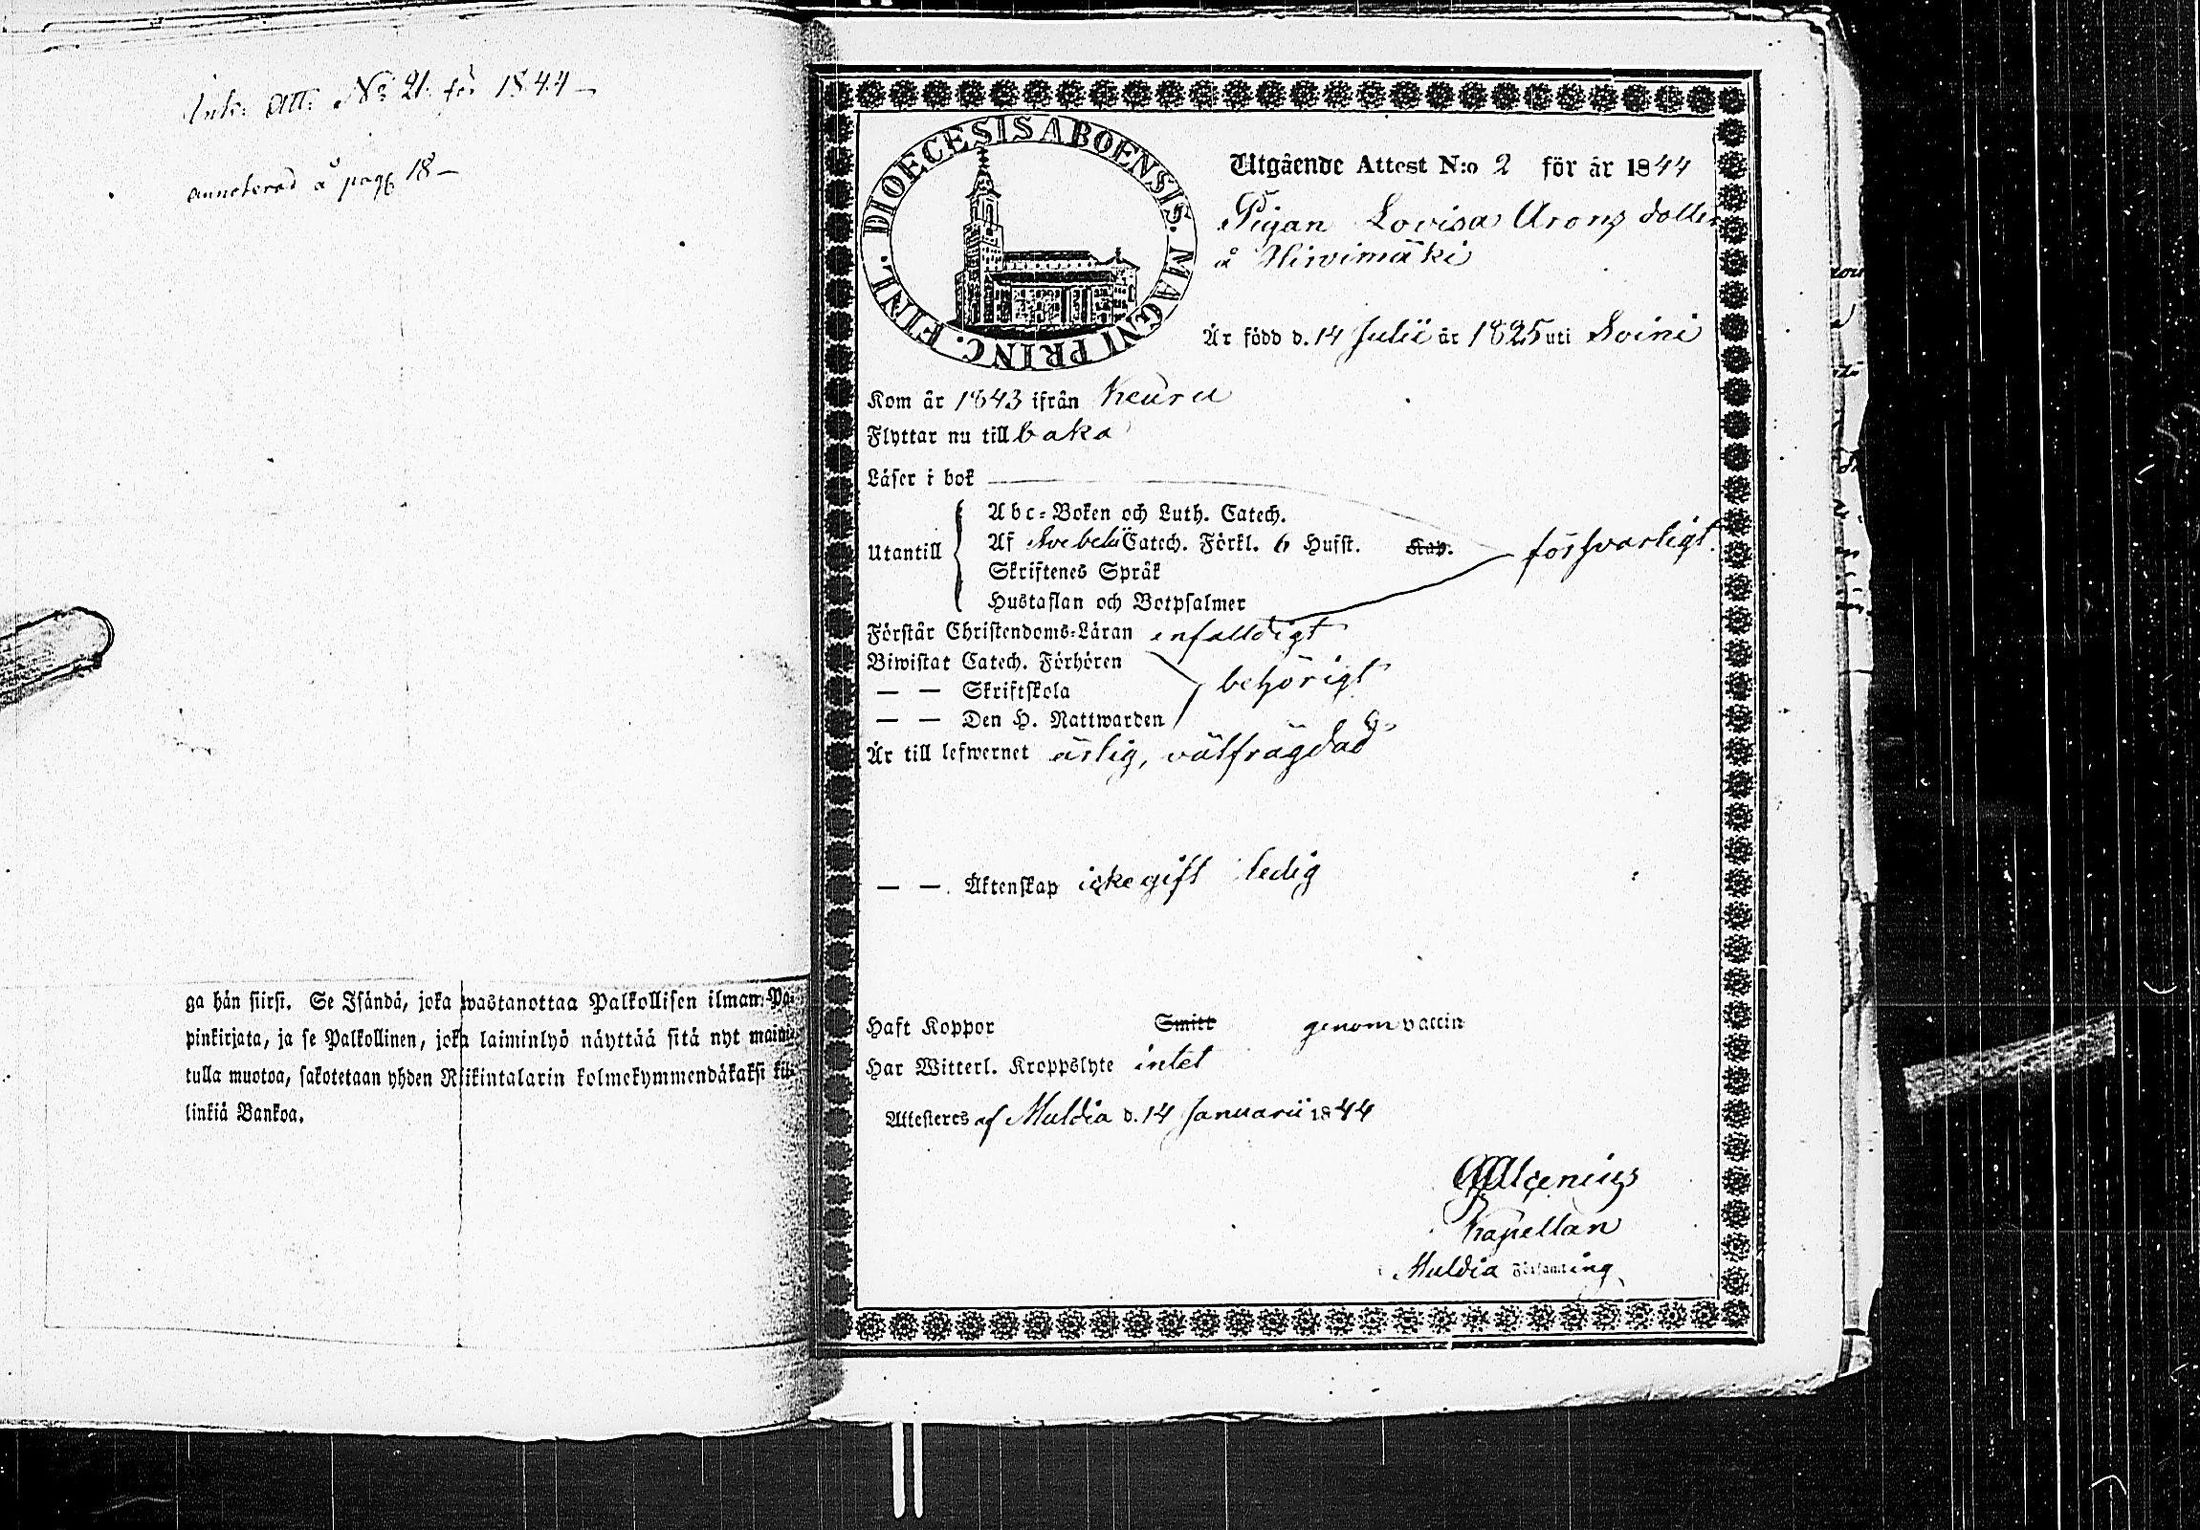 Ink: Att: No 21. för 1844 –
annoterad å pag. 18 –
ga hän siirsi. Se Isändä, joka wastanottaa Palkollisen ilman Pa-
pinkirjata, ja se Palkollinen, joka laiminlyö näyttää sitä nyt maini-
tulla muotoa, sakotetaan yhden Riikintalarin kolmekymmendäkaksi kil-
linkiä Bankoa.
DIOECESIS ABOENSIS. MAGNI PRINC. FINL.
Utgående Attest N:o 2 för år 1844
Pigan Lovisa Arons dotter
å Hirvimäki
Är född d. 14 Julii år 1825 uti Soini
Kom år 1843 ifrån Keuru
Flyttar nu till baka
Läser i bok
Utantill
Abc-Boken och Luth. Catech.
Af Svebelii Catech. Förkl. 6 Hufst. Kap. försvarligt.
Skriftenes Språk
Hustaflan och Botpsalmer
Förstår Christendoms-Läran enfalldigt
Biwistat Catech. Förhören
— — Skriftskola behörigt
— — Den H. Nattwarden
Är till lefwernet ärlig, välfrägdad
— — Äktenskap icke gift ledig
Haft Koppor Smitt genom vaccin
Har Witterl. Kroppslyte intet
Attesteres af Muldia d. 14 Januarii 1844
Kapellan
Muldia Församling